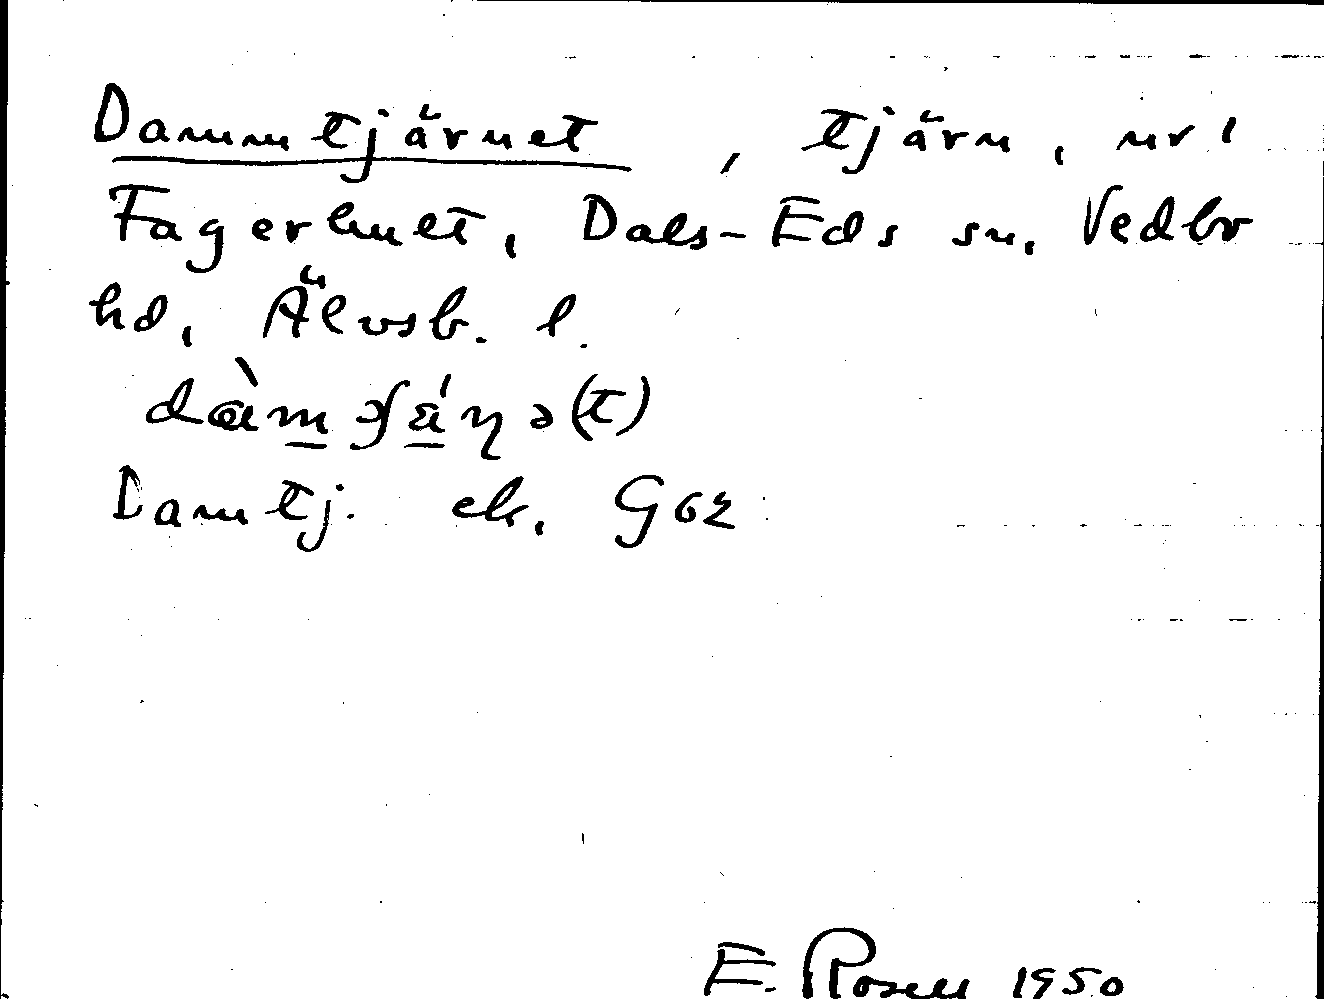 Dammtjärnet, tjärn, nr 1
Fagerhult, Dals-Eds sn, Vedbo
hd, Älvsb. l.
Damtj. ek. G62
E. Rosell 1950